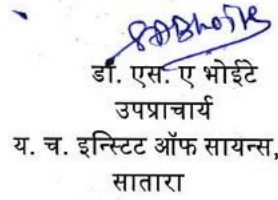 डॉ. एस. ए भोईटे
उपप्राचार्य
य. च. इन्स्टिट ऑफ सायन्स,
सातारा